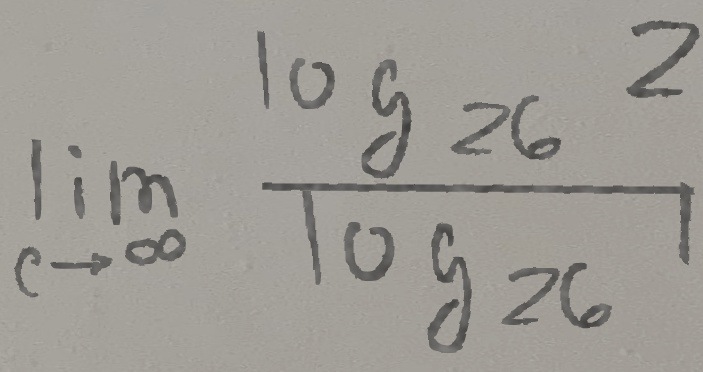 lim c→∞ log₂₆ 2 / log₂₆ 1